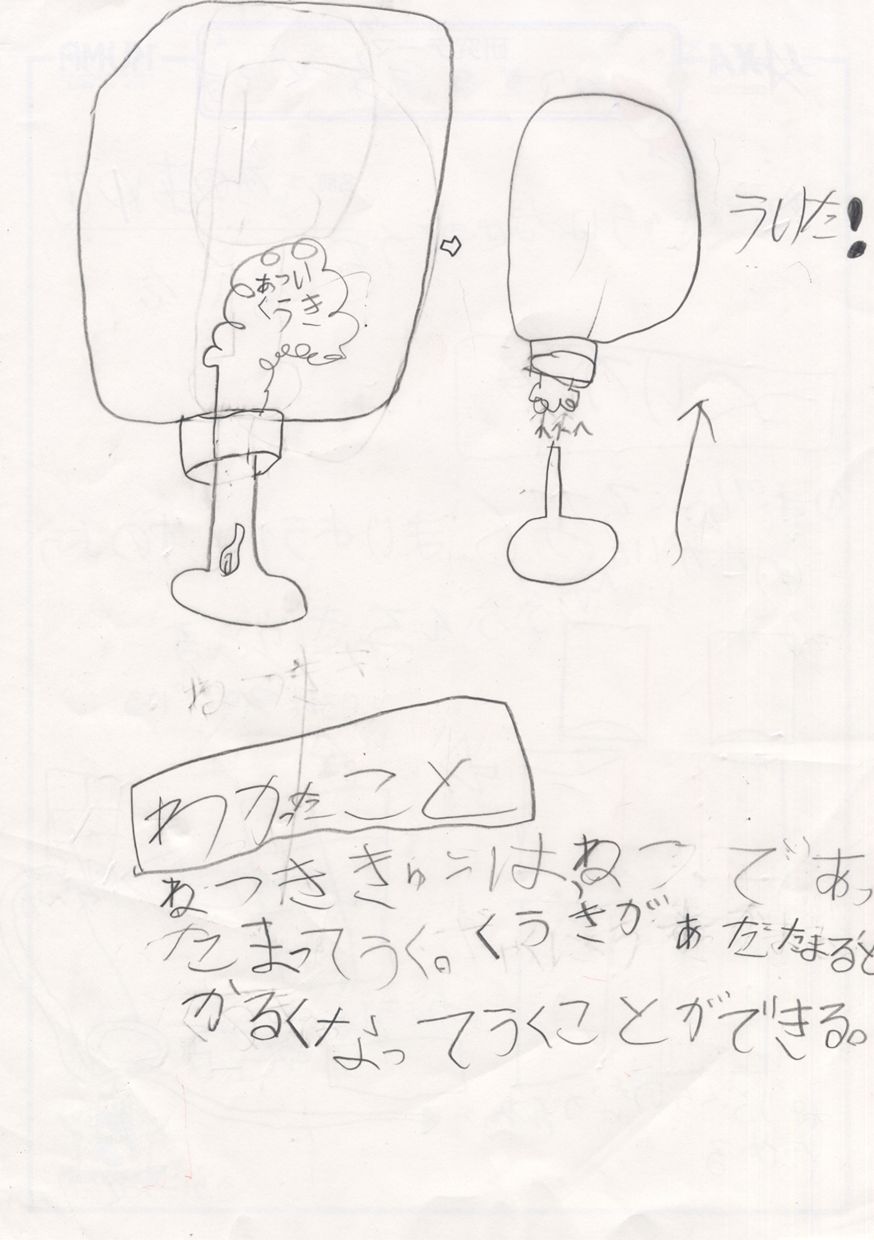 ういた!
あつい
くうき
わかったこと
ねつききゅうはねつであっ
たまってうく。くうきがあだたまると
かるくなってうくことができる。